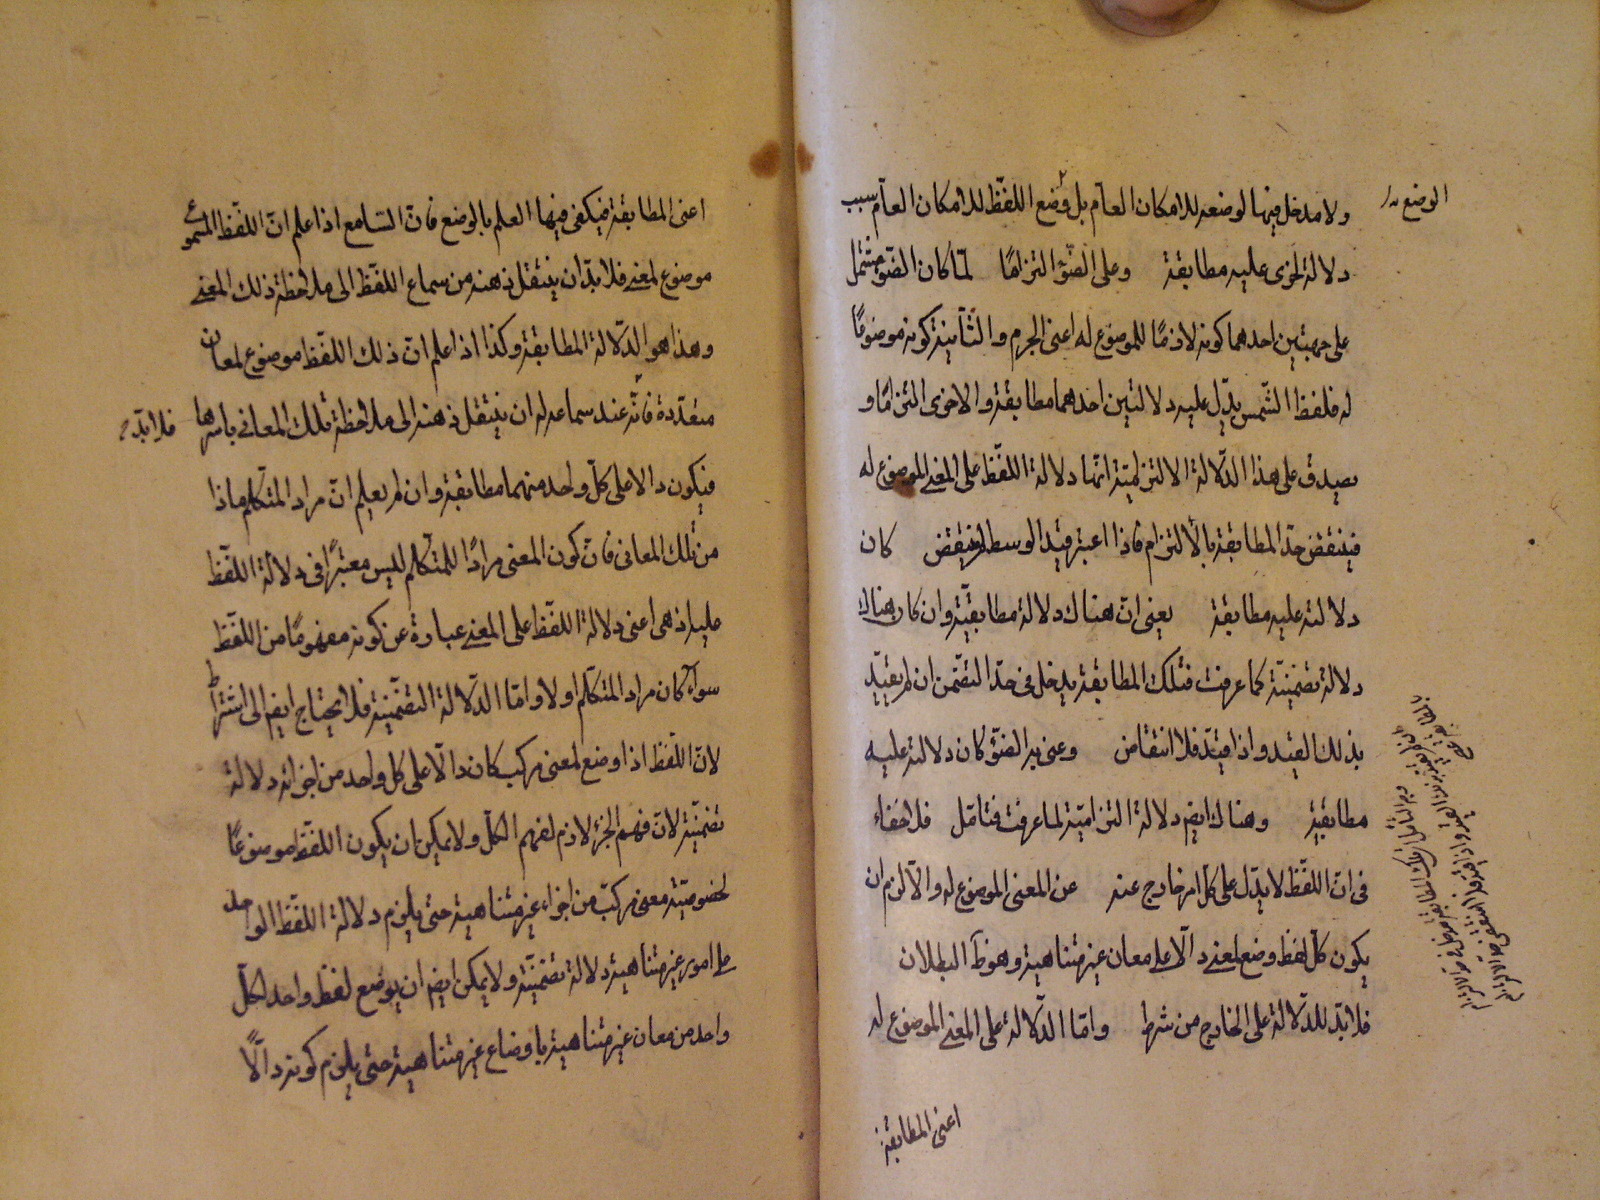 ولا مدخل فيها لوضعه للامكان العآم بل وضع اللفظ للامكان العآم سبب
الوضع
دلالة اخرى عليه مطابقة وعلى الضّوّ التزامًا لمّا كان الضّوّ مشتمل
على جهتين احدهما كونه لازمًا للموضوع له اعنى الجرم والثّآنية كونه موضوعًا
له فلفظ الشّمس يدّل عليه دلالتين احدهما مطابقة والاخرى التزامًا و
يصدق على هذا الدّلالة الالتزاميّة انّها دلالة اللفّظ على المعنى الموضوع له
فينتقض حدّ المطابقة بالالتزام فاذا اعتبر قيد الوسط لم ينتقض كان
دلالته عليه مطابقة يعنى انّ هناك دلالة مطابقيّة وان كان هناك
دلالة تضمّنيّة كما عرفت فتلك المطابقة يدخل فى حدّ التضّمن ان لم يقيّد
بذلك القيد واذا قيّد فلا انتقاض وعنى به الضّوّ كان دلالته عليه
مطابقيّة وهناك ايضم دلالة التزاميّة لما عرفت فتامّل فلا خفاء
فى انّ اللفّظ لا يدّل على كلّ امر خارج عنه عن المعنى الموضوع له والّا لزم ان
يكون كلّ لفظ وضع لمعنى دالّا على معان غير متناهية وهو ظ البطلان
فلا بدّ للدّلالة على الخارج من شرط وامّا الدّلالة على المعنى الموضوع له
اعنى المطابقة
اعنى المطابقة فيكفى فيها العلم بالوضع فانّ السّامع اذا علم انّ اللفّظ المسموع
موضوع لمعنى فلا بدّ ان ينتقل ذهنه من سماع اللفّظ الى ملاحظة ذلك المعنى
وهذا هو الدّلالة المطابقة وكذا اذا علم انّ ذلك اللفّظ موضوع لمعان
متعدّدة فانّه عند سماعه له ان ينتقل ذهنه الى ملاحظة تلك المعانى باسرها
فلا بدّ
فيكون دالا على كلّ واحد منهما مطابقة وان لم يعلم انّ مراد المتكلّم ماذا
من تلك المعانى فانّ كون المعنى مرادًا للمتكلّم ليس معتبرًا فى دلالة اللفّظ
عليه اذ هى اعنى دلالة اللفّظ على المعنى عبارة عن كونه مفهومًا من اللفّظ
سوآء كان مراد المتكلّم اولا وامّا الدّلالة التضمّنية فلا يحتاج ايضم الى اشتراط
لانّ اللفّظ اذا وضع لمعنى مركب كان دالّا على كل واحد من اجزائه دلالة
تضمنيّة لانّ فهم الجزء لازم لفهم الكلّ ولا يمكن ان يكون اللفّظ موضوعًا
لخصوصيّة معنى مركبّ من اجزاء غير متناهية حتى يلزم دلالة اللفّظ الواحد
على امور غير متناهية دلالة تضمّنيّة ولا يمكن ايضم ان يوضع لفظ واحد لكلّ
واحد من معان غير متناهية باوضاع غير متناهية حتى يلزم كونه دالّا